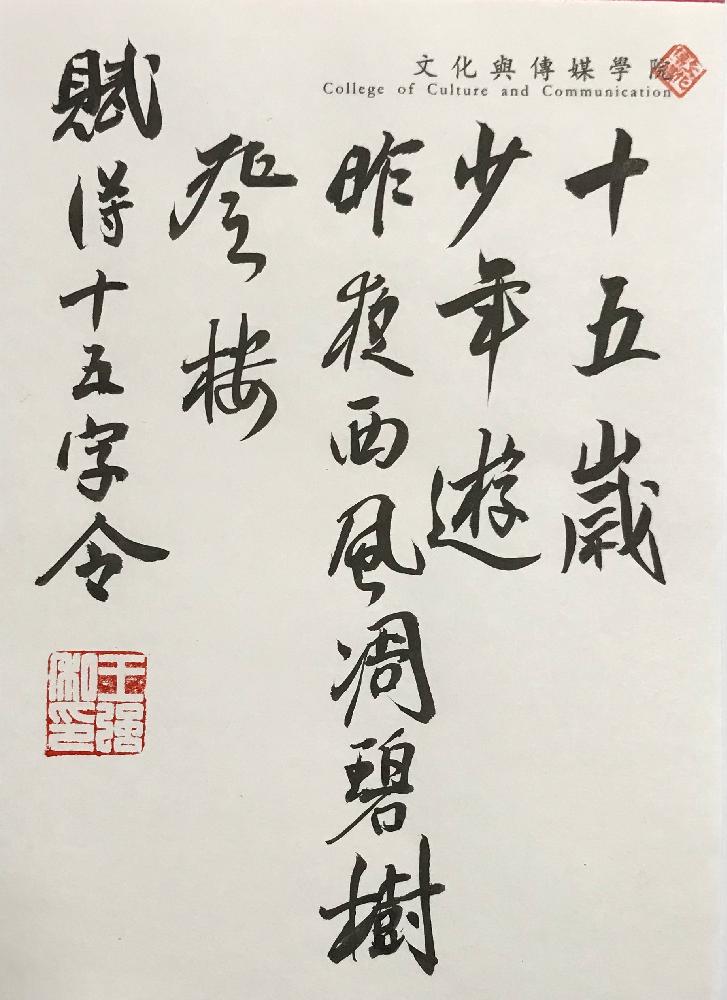 文化與傳媒學院
College of Culture and Communication
十五歲
少年遊
昨夜西風凋碧樹
登樓
賦得十五字令
王强私印